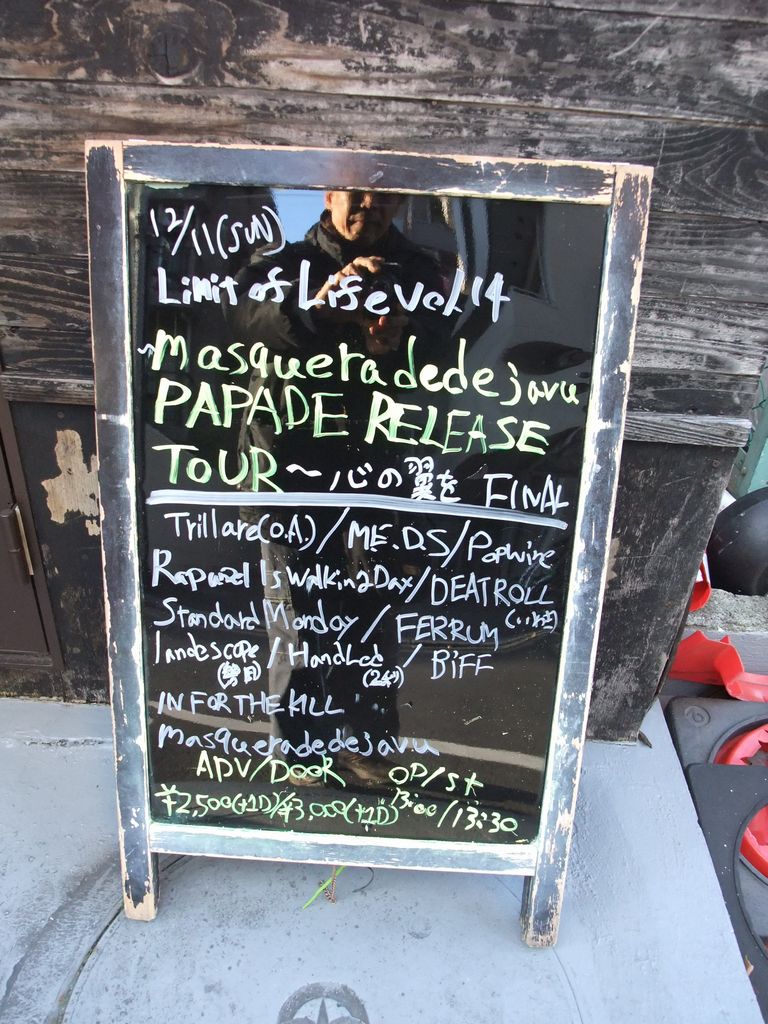 12/11(SUN)
Limit of Life vol.14
masqueradedejavu
PAPADE RELEASE
TOUR ～心の翼を FINAL
Trillare(O.A.)/ME.DS/Popwire
Rapunzel Is Walking Day/DEATROLL
Standard Monday/FERRUM
landescope/HandLed/BIFF
IN FOR THE KILL
masqueradedejavu
ADV/DOOR OP/ST
¥2,500(+1D)/¥3,000(+1D) 13:00/13:30